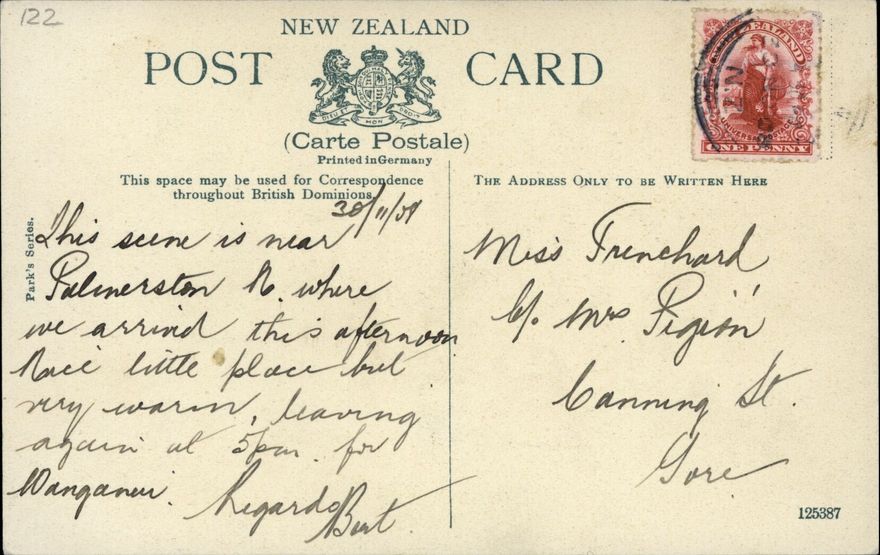 122
NEW ZEALAND
POST CARD
DIEU ET MON DROIT
(Carte Postale)
Printed in Germany
This space may be used for Correspondence
throughout British Dominions.
THE ADDRESS ONLY TO BE WRITTEN HERE
Park's Series.
30/11/08
This scene is near
Palmerston N. where
we arrived this afternoon
Nice little place but
very warm, leaving
again at 5pm. for
Wanganui.
Regards
Bert
ZEALAND
UNIVERSAL
ONE PENNY
Miss Trenchard
c/o Mrs Pigion
Canning St.
Gore
125387